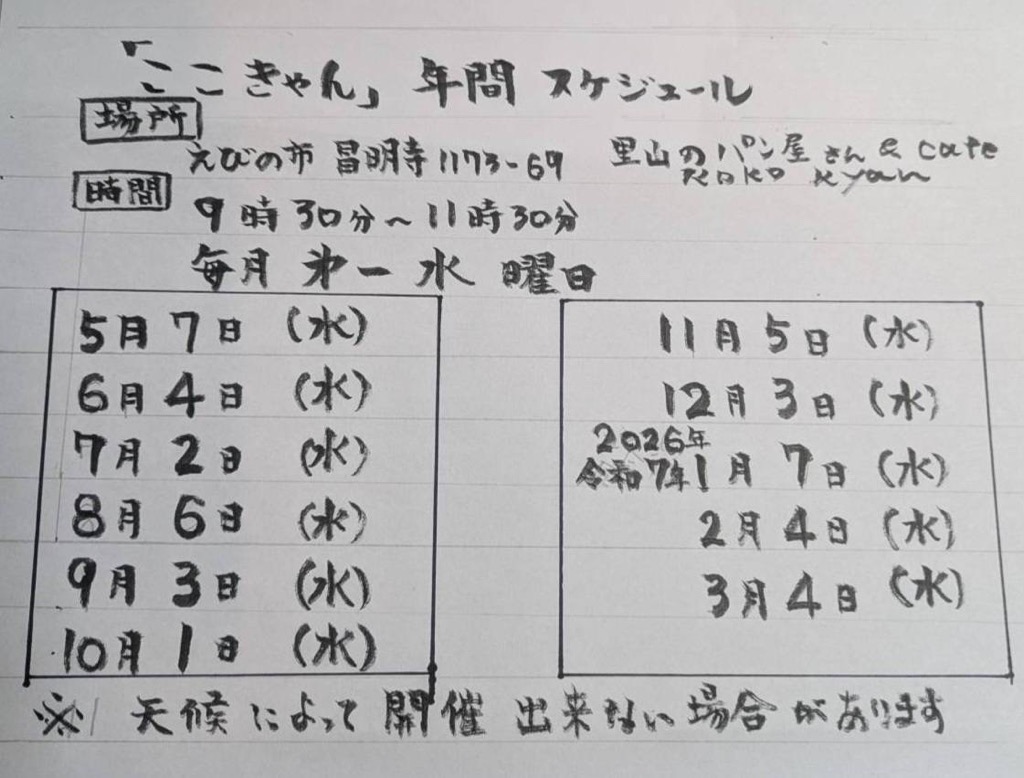 「ここきゃん」年間スケジュール
場所
えびの市 昌明寺1173-69 里山のパン屋さん & cafe
KoKo Kyan
時間
9時30分～11時30分
毎月 第一水曜日
5月7日 (水)
6月4日 (水)
7月2日 (水)
8月6日 (水)
9月3日 (水)
10月1日 (水)
11月5日 (水)
12月3日 (水)
2026年
令和7年1月7日 (水)
2月4日 (水)
3月4日 (水)
※ 天候によって開催出来ない場合があります